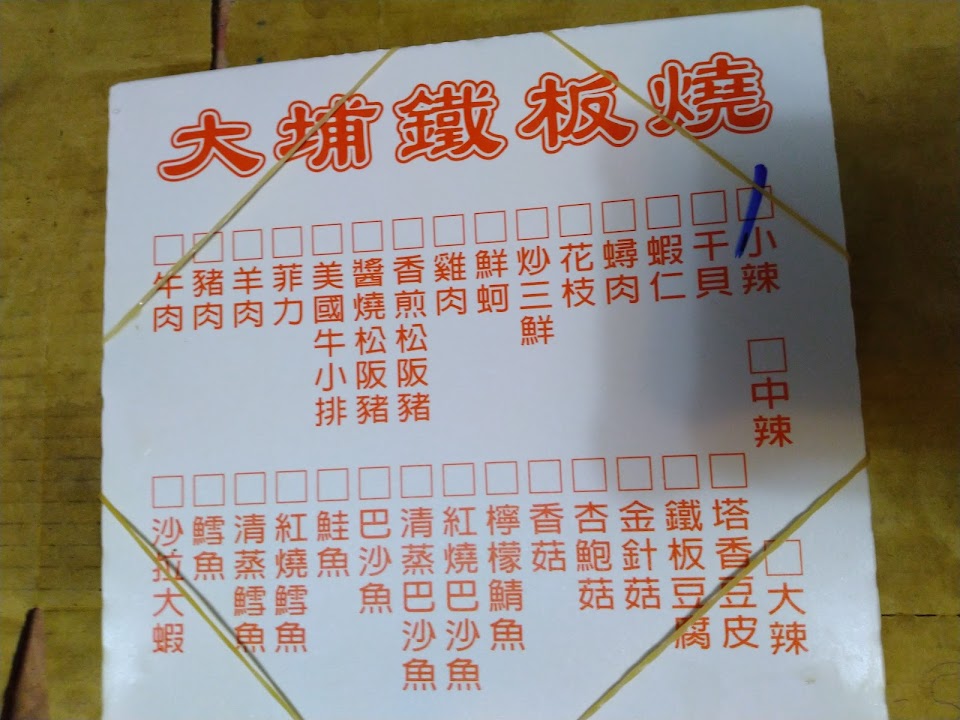 大埔鐵板燒
小辣
中辣
大辣
干貝
蝦仁
蟳肉
花枝
炒三鮮
鮮蚵
雞肉
香煎松阪豬
醬燒松阪豬
美國牛小排
菲力
羊肉
豬肉
牛肉
塔香豆皮
鐵板豆腐
金針菇
杏鮑菇
香菇
檸檬鯖魚
紅燒巴沙魚
清蒸巴沙魚
巴沙魚
鮭魚
紅燒鱈魚
清蒸鱈魚
鱈魚
沙拉大蝦